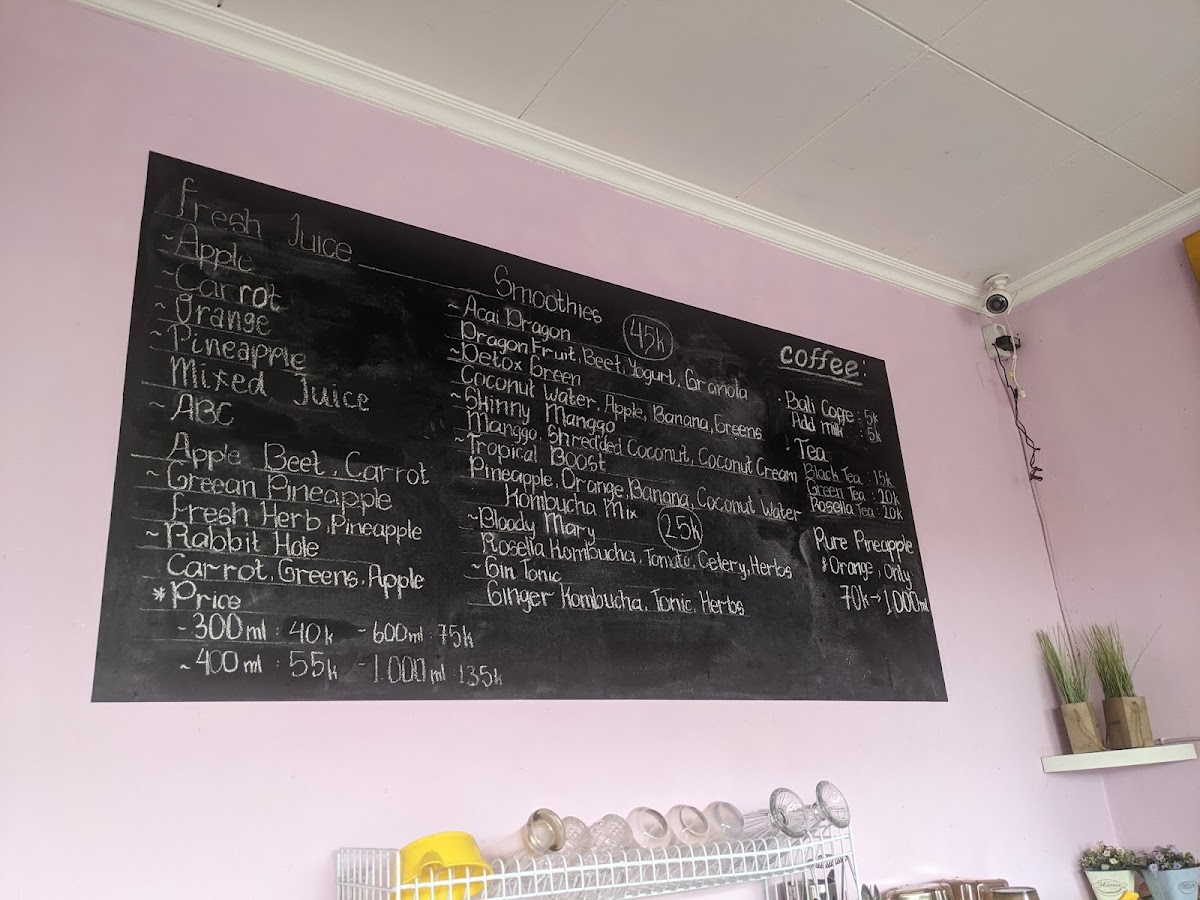 Fresh Juice
~Apple
~Carrot
~Orange
~Pineapple
Mixed Juice
~ABC
Apple Beet, Carrot
~Greean Pineapple
Fresh Herb, Pineapple
~Rabbit Hole
Carrot, Greens, Apple
*Price
~300ml : 40k ~600ml : 75k
~400ml : 55k ~1.000ml : 135k
Smoothies 45k
~Acai Dragon
Dragon Fruit, Beet, Yogurt, Granola
~Detox Green
Coconut Water, Apple, Banana, Greens
~Skinny Manggo
Manggo, Shredded Coconut, Coconut Cream
~Tropical Boost
Pineapple, Orange, Banana, Coconut Water
Kombucha Mix 25k
~Bloody Mary
Rosella Kombucha, Tomato, Celery, Herbs
~Gin Tonic
Ginger Kombucha, Tonic, Herbs
coffee:
Bali Coffe : 5k
Add milk : 5k
Tea
Black Tea : 15k
Green Tea : 20k
Rosella Tea : 20k
Pure Pineapple
*Orange, Only
70k → 1,000ml